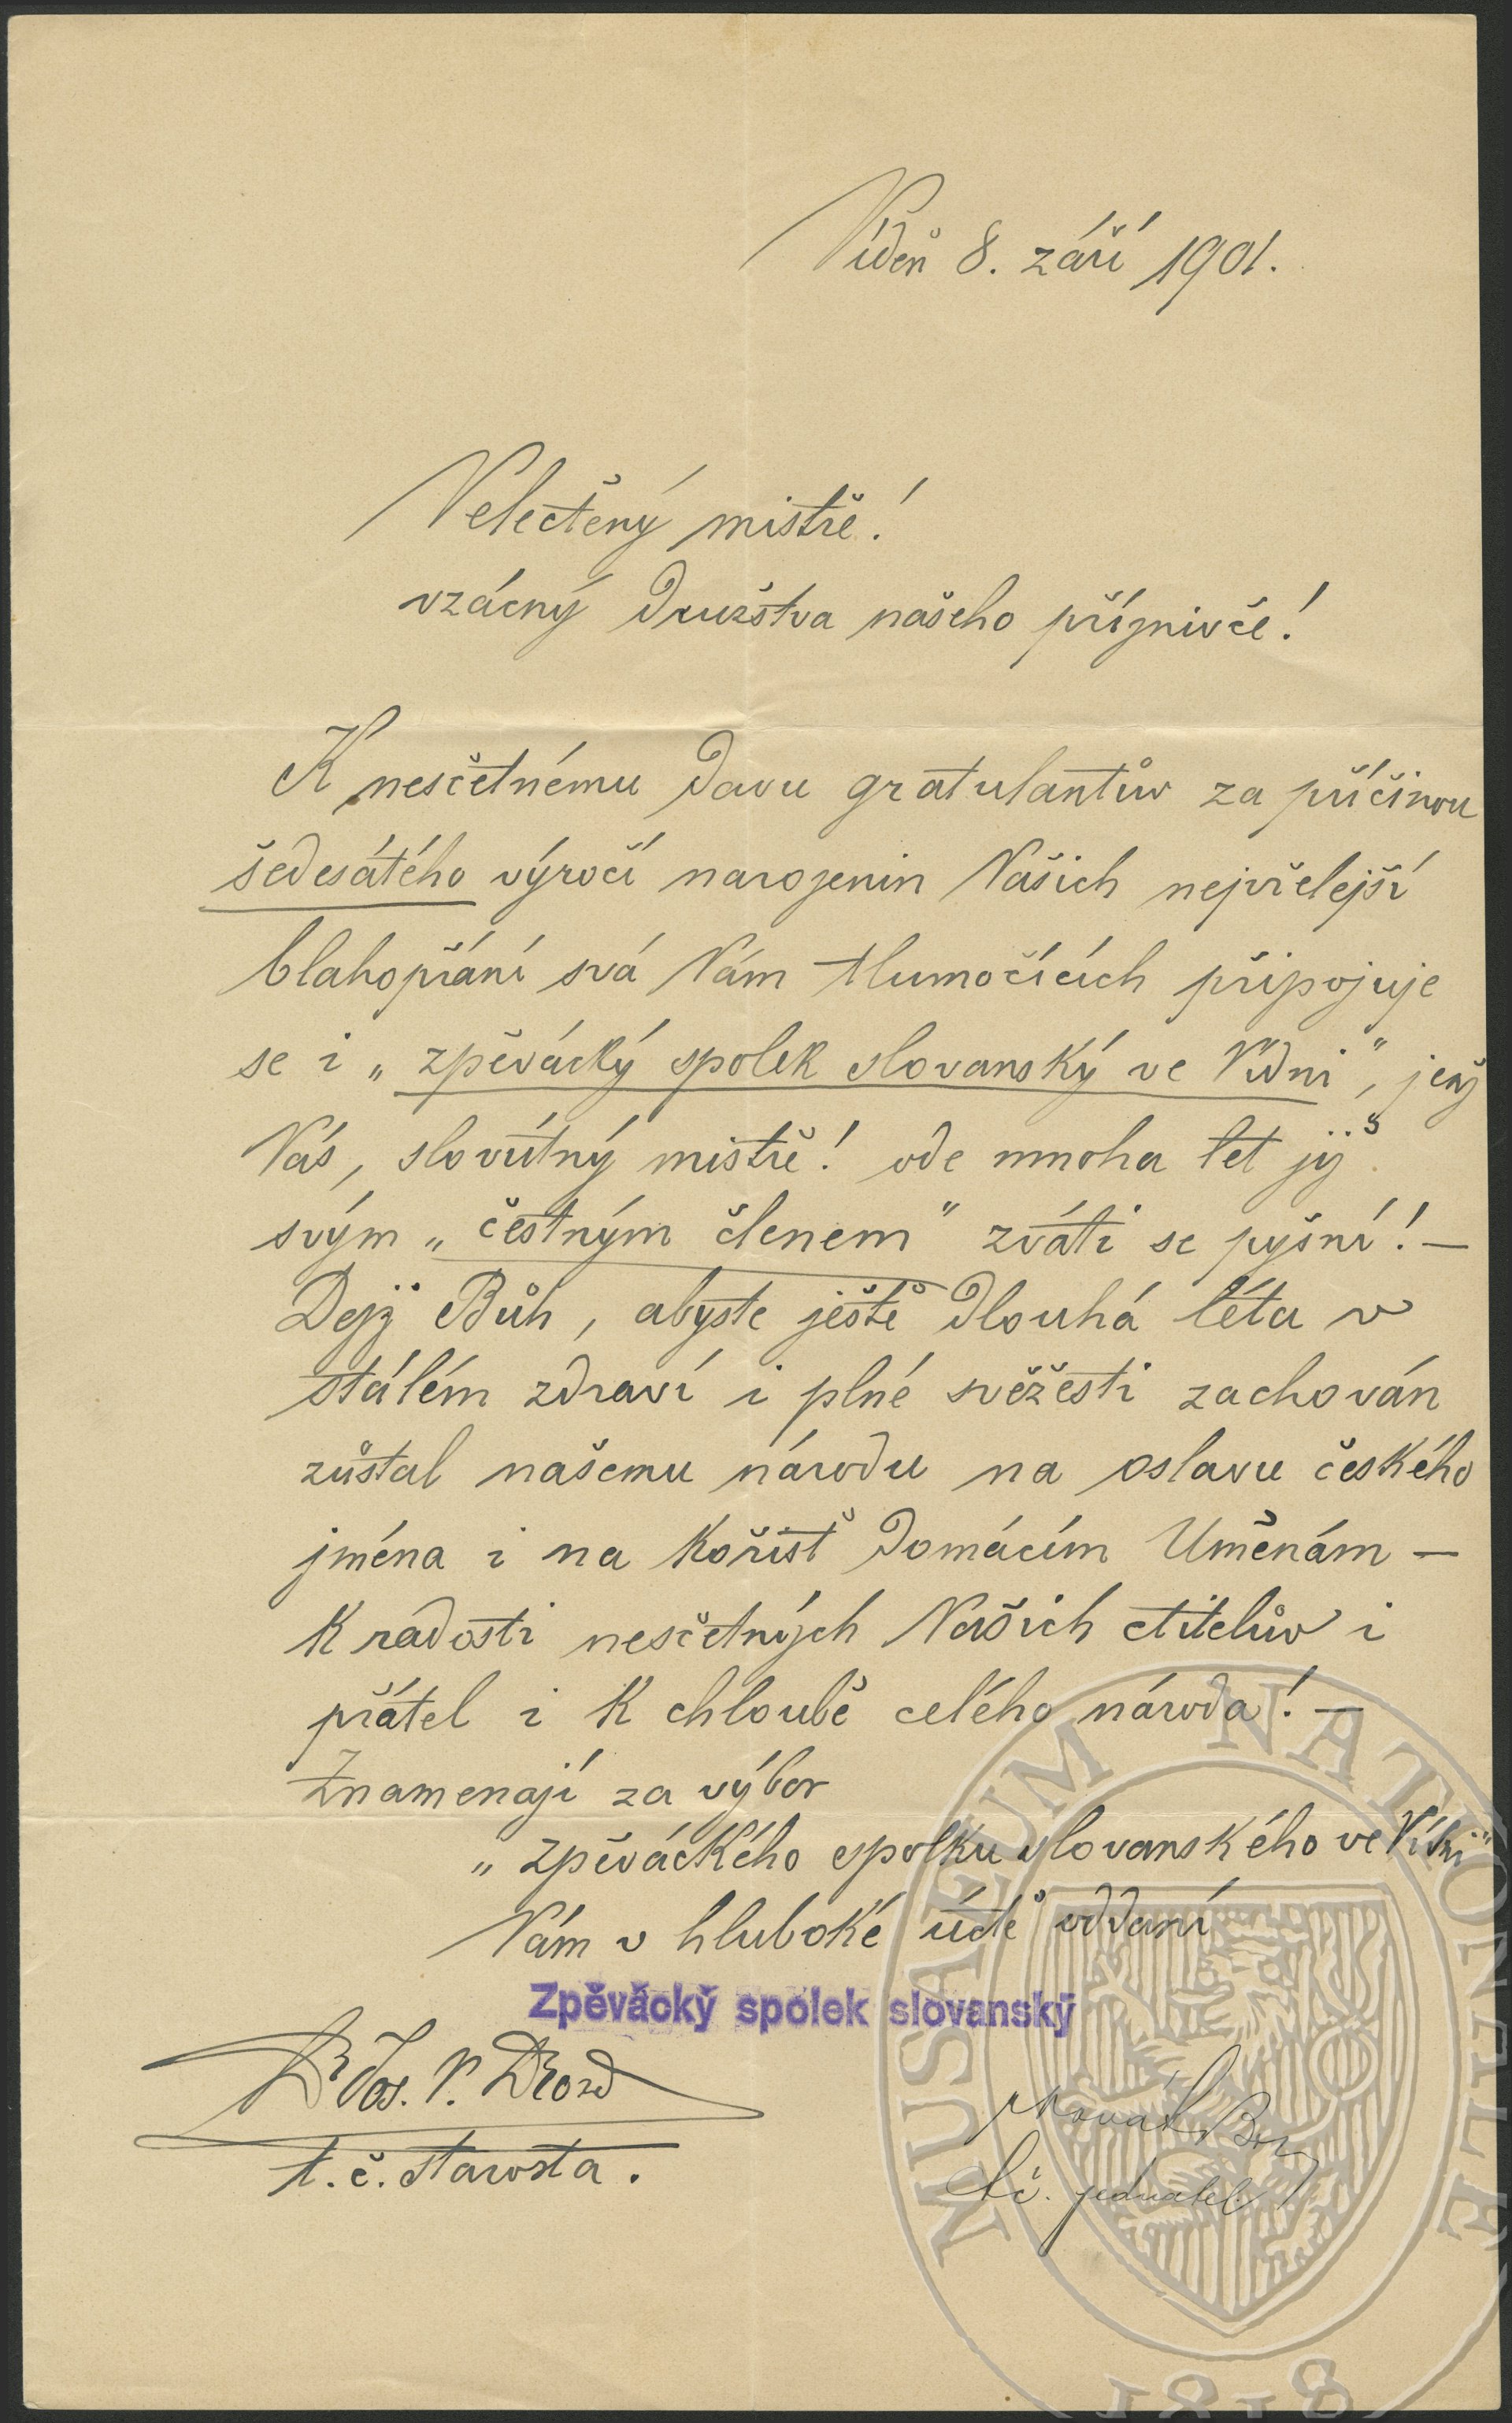 Vídeň 8. září 1901.
Velectěný mistře!
vzácný družstva našeho příznivče!
K nesčetnému davu gratulantův za příčinou
šedesátého výročí narozenin Vašich nejvřelejší
blahopřání svá Vám tlumočících připojuje
se i „zpěvácký spolek slovanský ve Vídni“, jenž
Vás, slovútný mistře! ode mnoha let již
svým „čestným členem“ zváti se pyšní! —
Dejž Bůh, abyste ještě dlouhá léta v
stálém zdraví i plné svěžesti zachován
zůstal našemu národu na oslavu českého
jména i na kořist domácím Uměnám —
k radosti nesčetných Vašich ctitelův i
přátel i k chloubě celého národa! —
Znamenají za výbor
„zpěváckého spolku slovanského ve Vídni“
Vám v hluboké úctě oddaní
Zpěvácký spolek slovanský
Dr Jos. V. Drozd
t. č. starosta.
Novák
t. č. jednatel.
MUSAEUM NATIONALE
1818